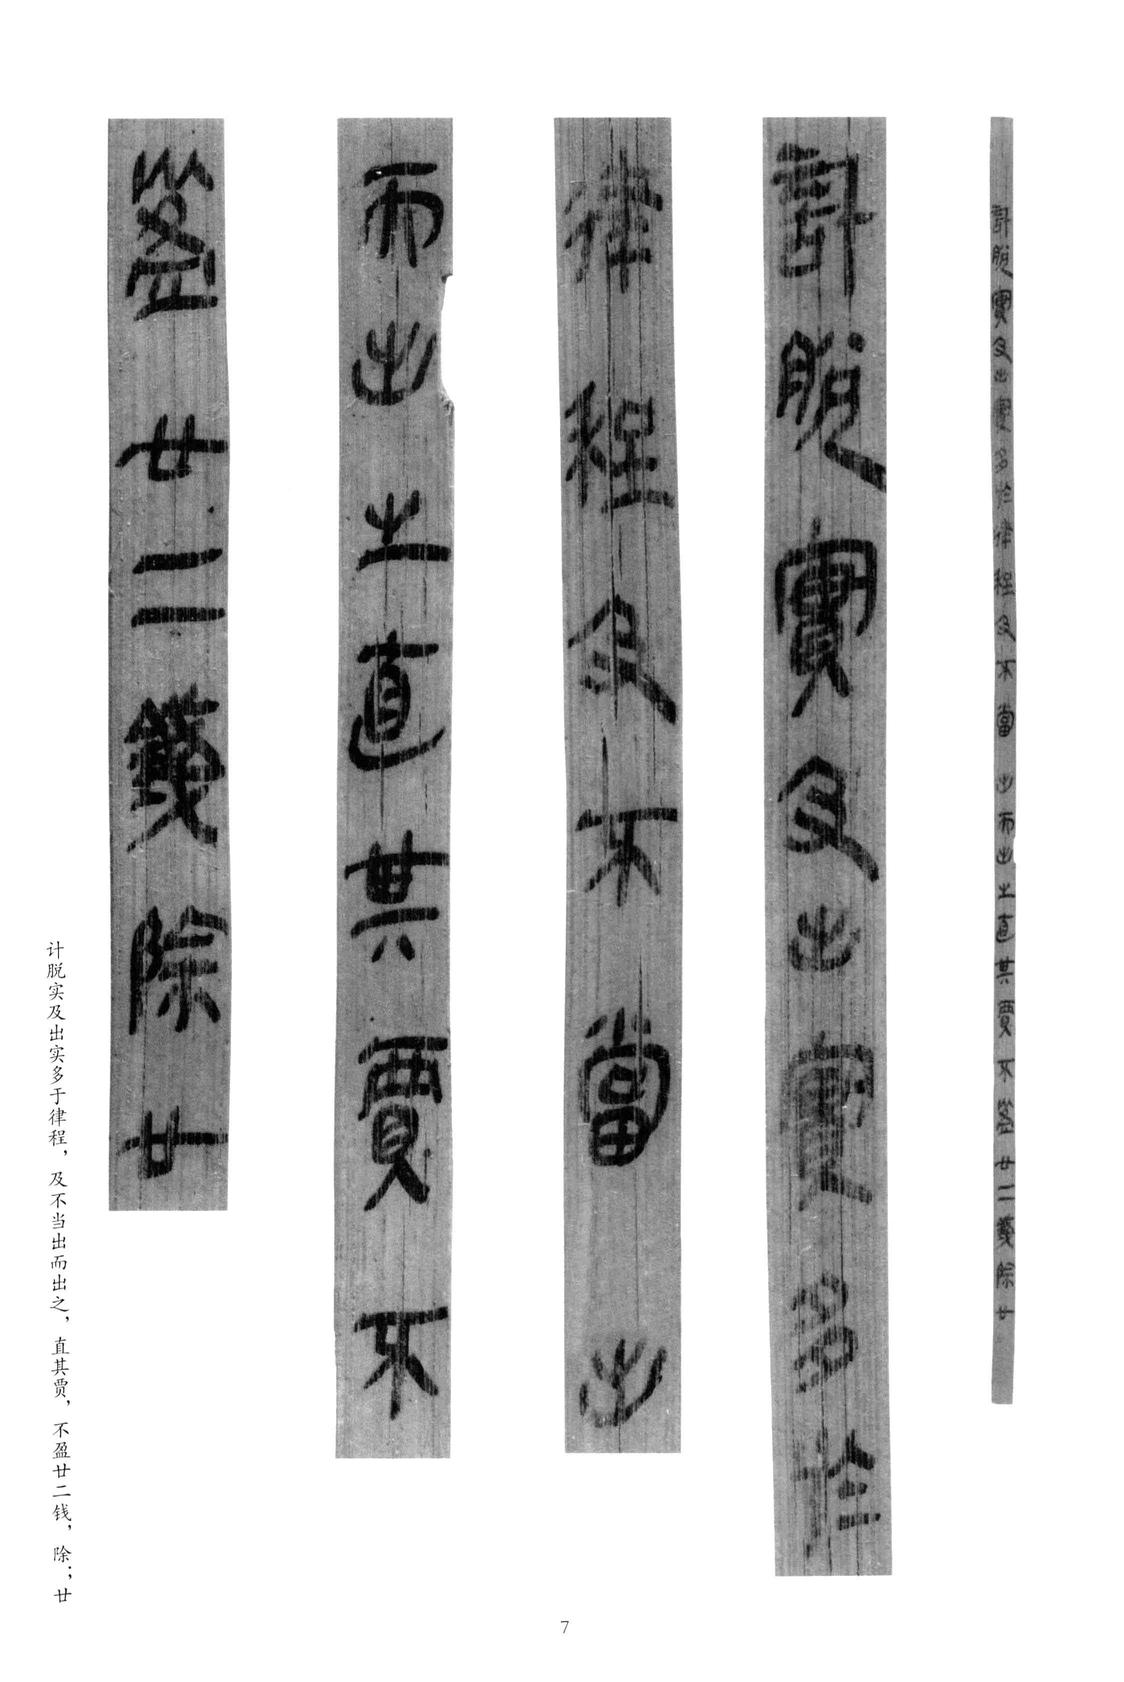 計脫實及出實多於律程及不當出而出之直其賈不盈廿二錢除廿
計脫實及出實多於
律程及不當出
而出之直其賈不
盈廿二錢除廿
计脱实及出实多于律程，及不当出而出之，直其贾，不盈廿二钱，除；廿
7